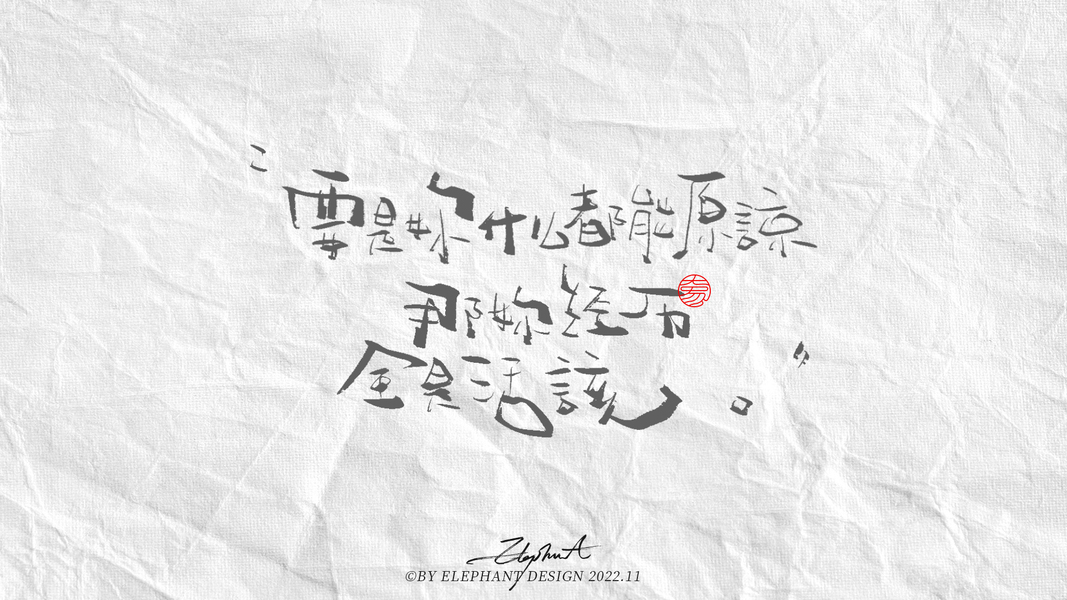 “要是妳什么都能原諒
那妳经历
全是活該。”
象
Elephant
©BY ELEPHANT DESIGN 2022.11